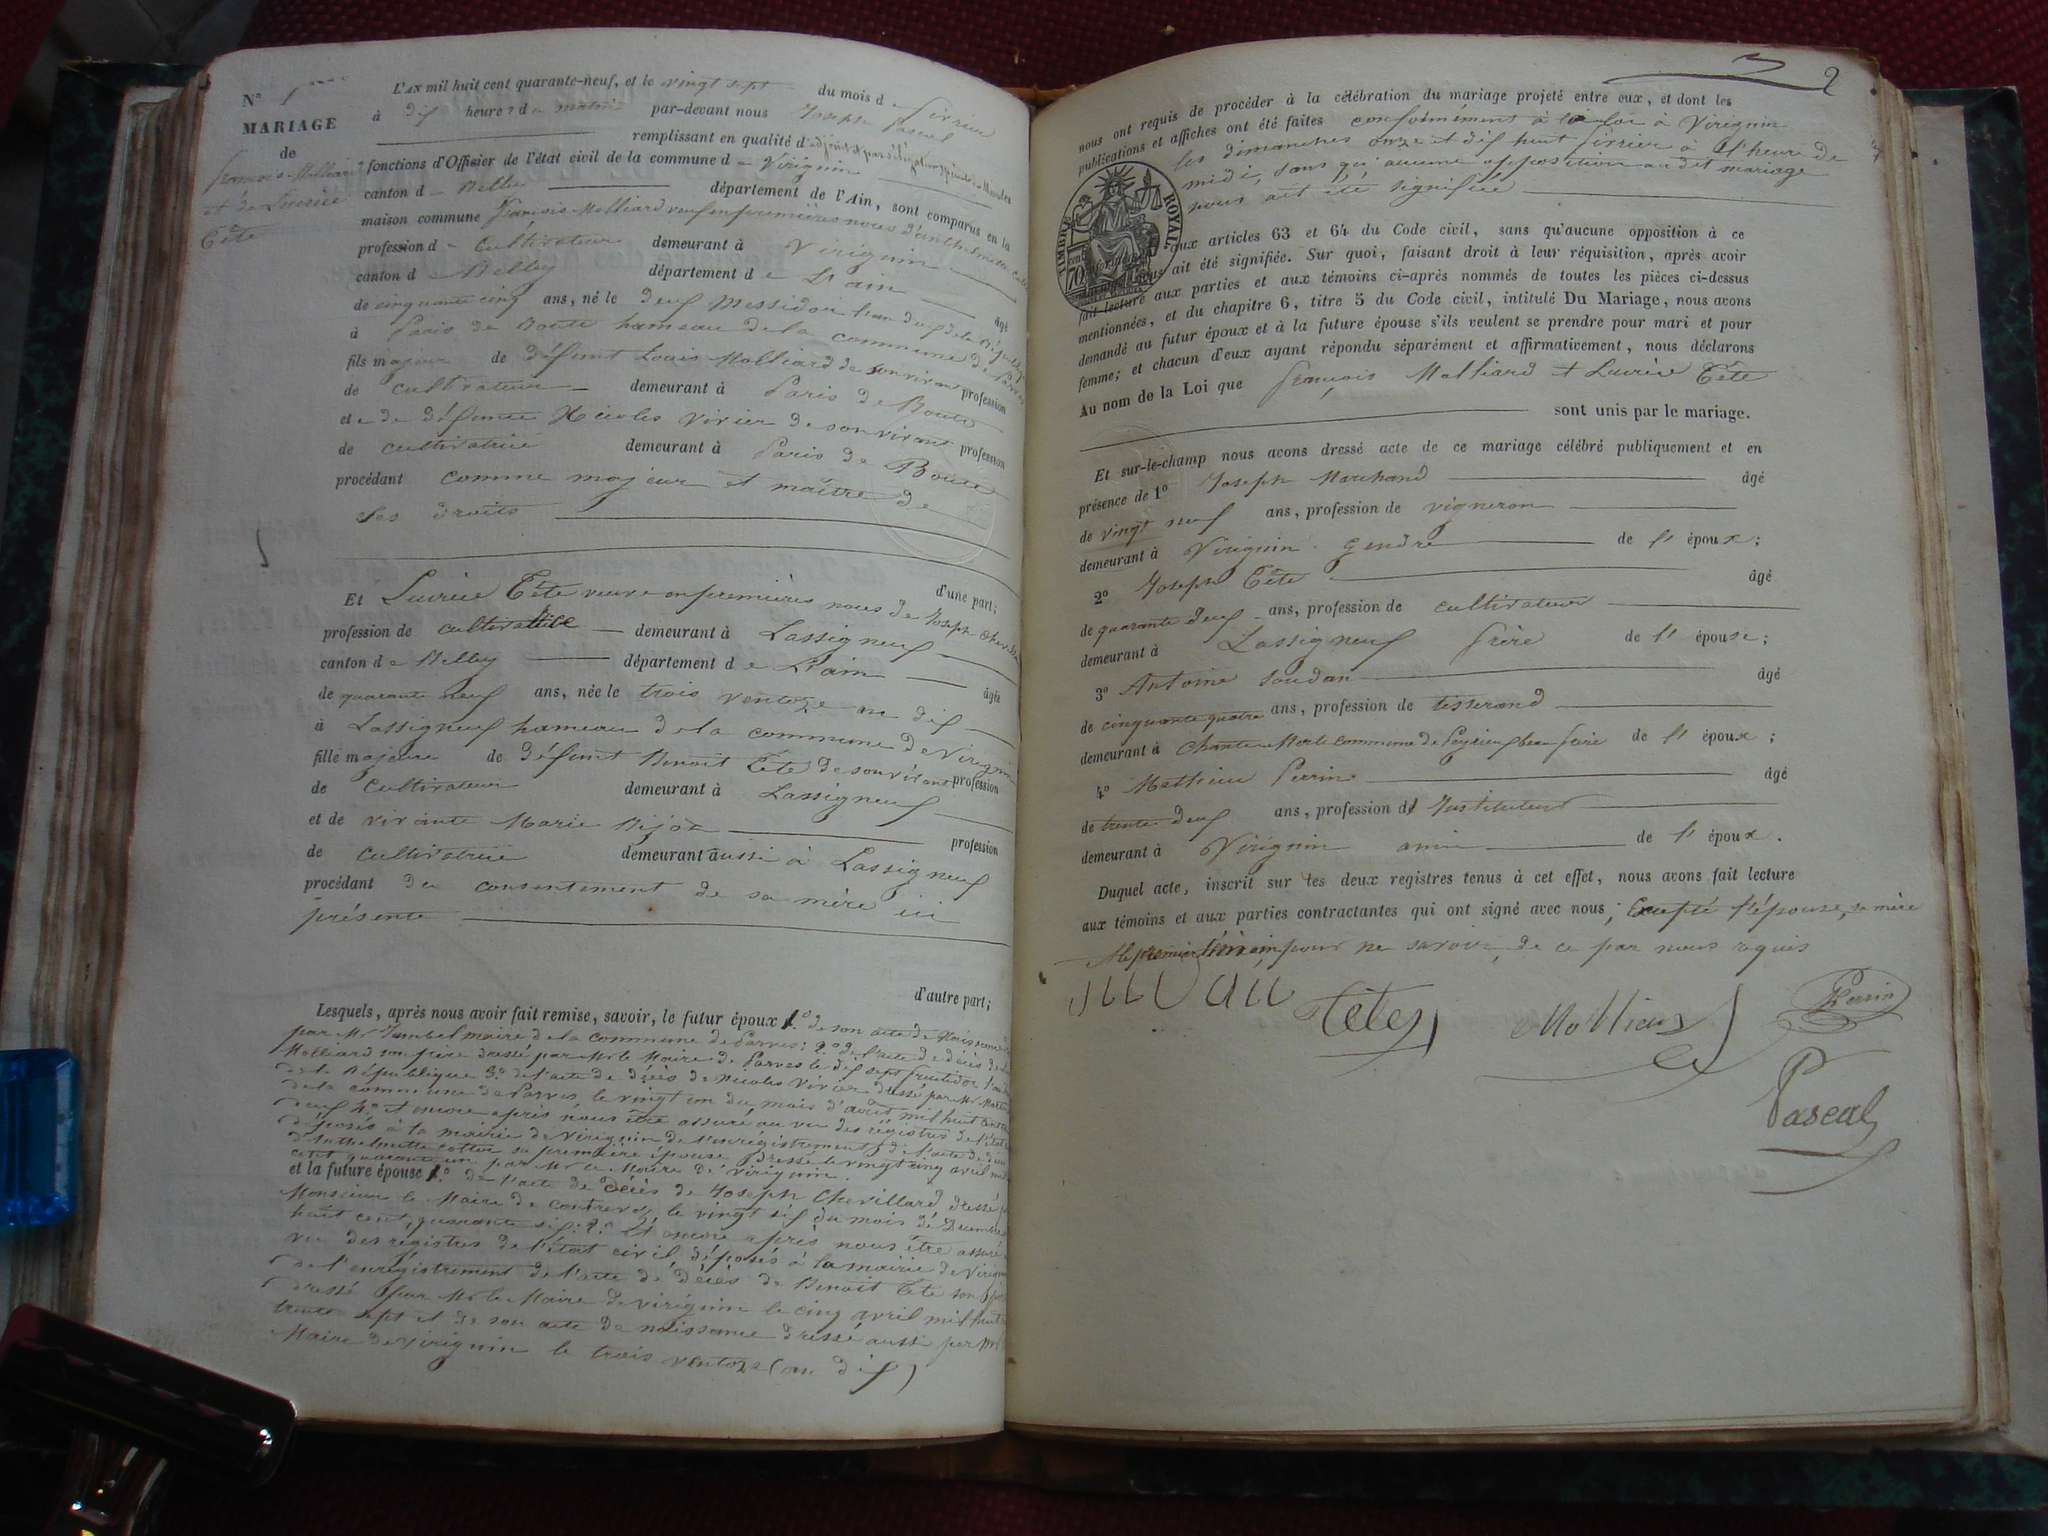 N° 1
MARIAGE
de
François Molliard
et de Lucrèce
Tête
L'AN mil huit cent quarante-neuf, et le vingt sept du mois de février
à dix heures du matin par-devant nous Joseph Pascal
remplissant en qualité d
fonctions d'Officier de l'état civil de la commune de Virignin
canton de Belley département de l'Ain, sont comparus en la
maison commune François Molliard veuf en premières noces d'Anthelmette
profession de Cultivateur demeurant à Virignin
canton de Belley département de L'ain âgé
de cinquante cinq ans, né le deux Messidor l'an deux de la République
à Paris de Boute hameau de la commune de Parves
fils majeur de défunt Louis Molliard de son vivant profession
de cultivateur demeurant à Paris de Boute
et de défunte Nicolas Vivier de son vivant profession
de cultivatrice demeurant à Paris de Boute
procédant comme majeur et maître de
ses droits
d'une part;
Et Lucrèce Tête veuve en premières noces de Joseph
profession de cultivatrice demeurant à Lassigneux
canton de Belley département de L'ain âgée
de quarante neuf ans, née le trois ventoze an dix
à Lassigneux hameau de la commune de Virignin
fille majeure de défunt Benoit Tête de son vivant profession
de cultivateur demeurant à Lassigneux
et de vivante Marie Bijot profession
de cultivatrice demeurant aussi à Lassigneux
procédant du consentement de sa mère ici
présente
d'autre part;
Lesquels, après nous avoir fait remise, savoir, le futur époux 1.° de son acte de Naissance
par Mr Jambel maire de la commune de Parves; 2.° de l'acte de décès de
Molliard son père dressé par Mr le Maire de Parves le dix sept fructidor l'an
de la République 3.° de l'acte de décès de Nicolas Vivier dressé par Mr
de la commune de Parves le vingt un du mois d'août mil huit cent
deux 4.° et encore après nous être assuré au vu des régistres de l'état
déposés à la mairie de Virignin de l'enrégistrement de l'acte de décès
d'Anthelmette sa première épouse dressé le vingt cinq avril mil
cent quarante un par Mr le Maire de Virignin.
et la future épouse 1.° de l'acte de décès de Joseph Chevillard dressé
Monsieur le Maire de le vingt six du mois de Décembre
huit cent quarante six: 2.° Et encore après nous être assuré
vu des régistres de l'état civil, déposés à la mairie de Virignin
de l'enrégistrement de l'acte de décès de Benoit Tête son père
dressé par Mr le Maire de Virignin le cinq avril mil huit
trente sept et de son acte de naissance dressé aussi par Mr
Maire de Virignin le trois ventoze (an dix)
2
nous ont requis de procéder à la célébration du mariage projeté entre eux, et dont les
publications et affiches ont été faites conformément à la loi à Virignin
les dimanches onze et dix huit février à l'heure de
midi, sans qu'aucune opposition au dit mariage
nous ait été signifiée
TIMBRE ROYAL
aux articles 63 et 64 du Code civil, sans qu'aucune opposition à ce
ait été signifiée. Sur quoi, faisant droit à leur réquisition, après avoir
fait lecture aux parties et aux témoins ci-après nommés de toutes les pièces ci-dessus
mentionnées, et du chapitre 6, titre 5 du Code civil, intitulé Du Mariage, nous avons
demandé au futur époux et à la future épouse s'ils veulent se prendre pour mari et pour
femme; et chacun d'eux ayant répondu séparément et affirmativement, nous déclarons
Au nom de la Loi que François Molliard et Lucrèce Tête
sont unis par le mariage.
Et sur-le-champ nous avons dressé acte de ce mariage célébré publiquement et en
présence de 1° Joseph Marchand âgé
de vingt neuf ans, profession de vigneron
demeurant à Virignin gendre de l'époux;
2° Joseph Tête âgé
de quarante deux ans, profession de cultivateur
demeurant à Lassigneux frère de l'épouse;
3° Antoine Soudan âgé
de cinquante quatre ans, profession de tisserand
demeurant à Chantemerle Commune de Peyrieux beau frère de l'époux;
4° Mathieu Perrin âgé
de trente deux ans, profession d'Instituteur
demeurant à Virignin ami de l'époux.
Duquel acte, inscrit sur les deux registres tenus à cet effet, nous avons fait lecture
aux témoins et aux parties contractantes qui ont signé avec nous; Excepté l'épouse, sa mère
et le premier témoin pour ne savoir, de ce par nous requis
Tête
Molliard
Perrin
Pascal